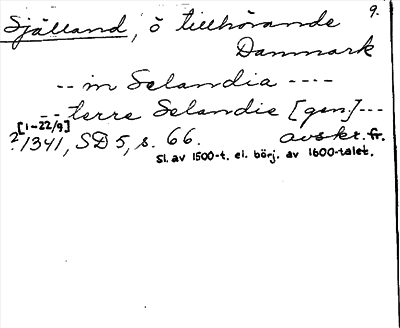 9.
Själland, ö tillhörande
Danmark
-- in Selandia ----
-- terre Selandie [gen.]---
[1-22/9]
?1341, SD 5, s. 66. avskr. fr.
sl. av 1500-t. el. börj. av 1600-talet.